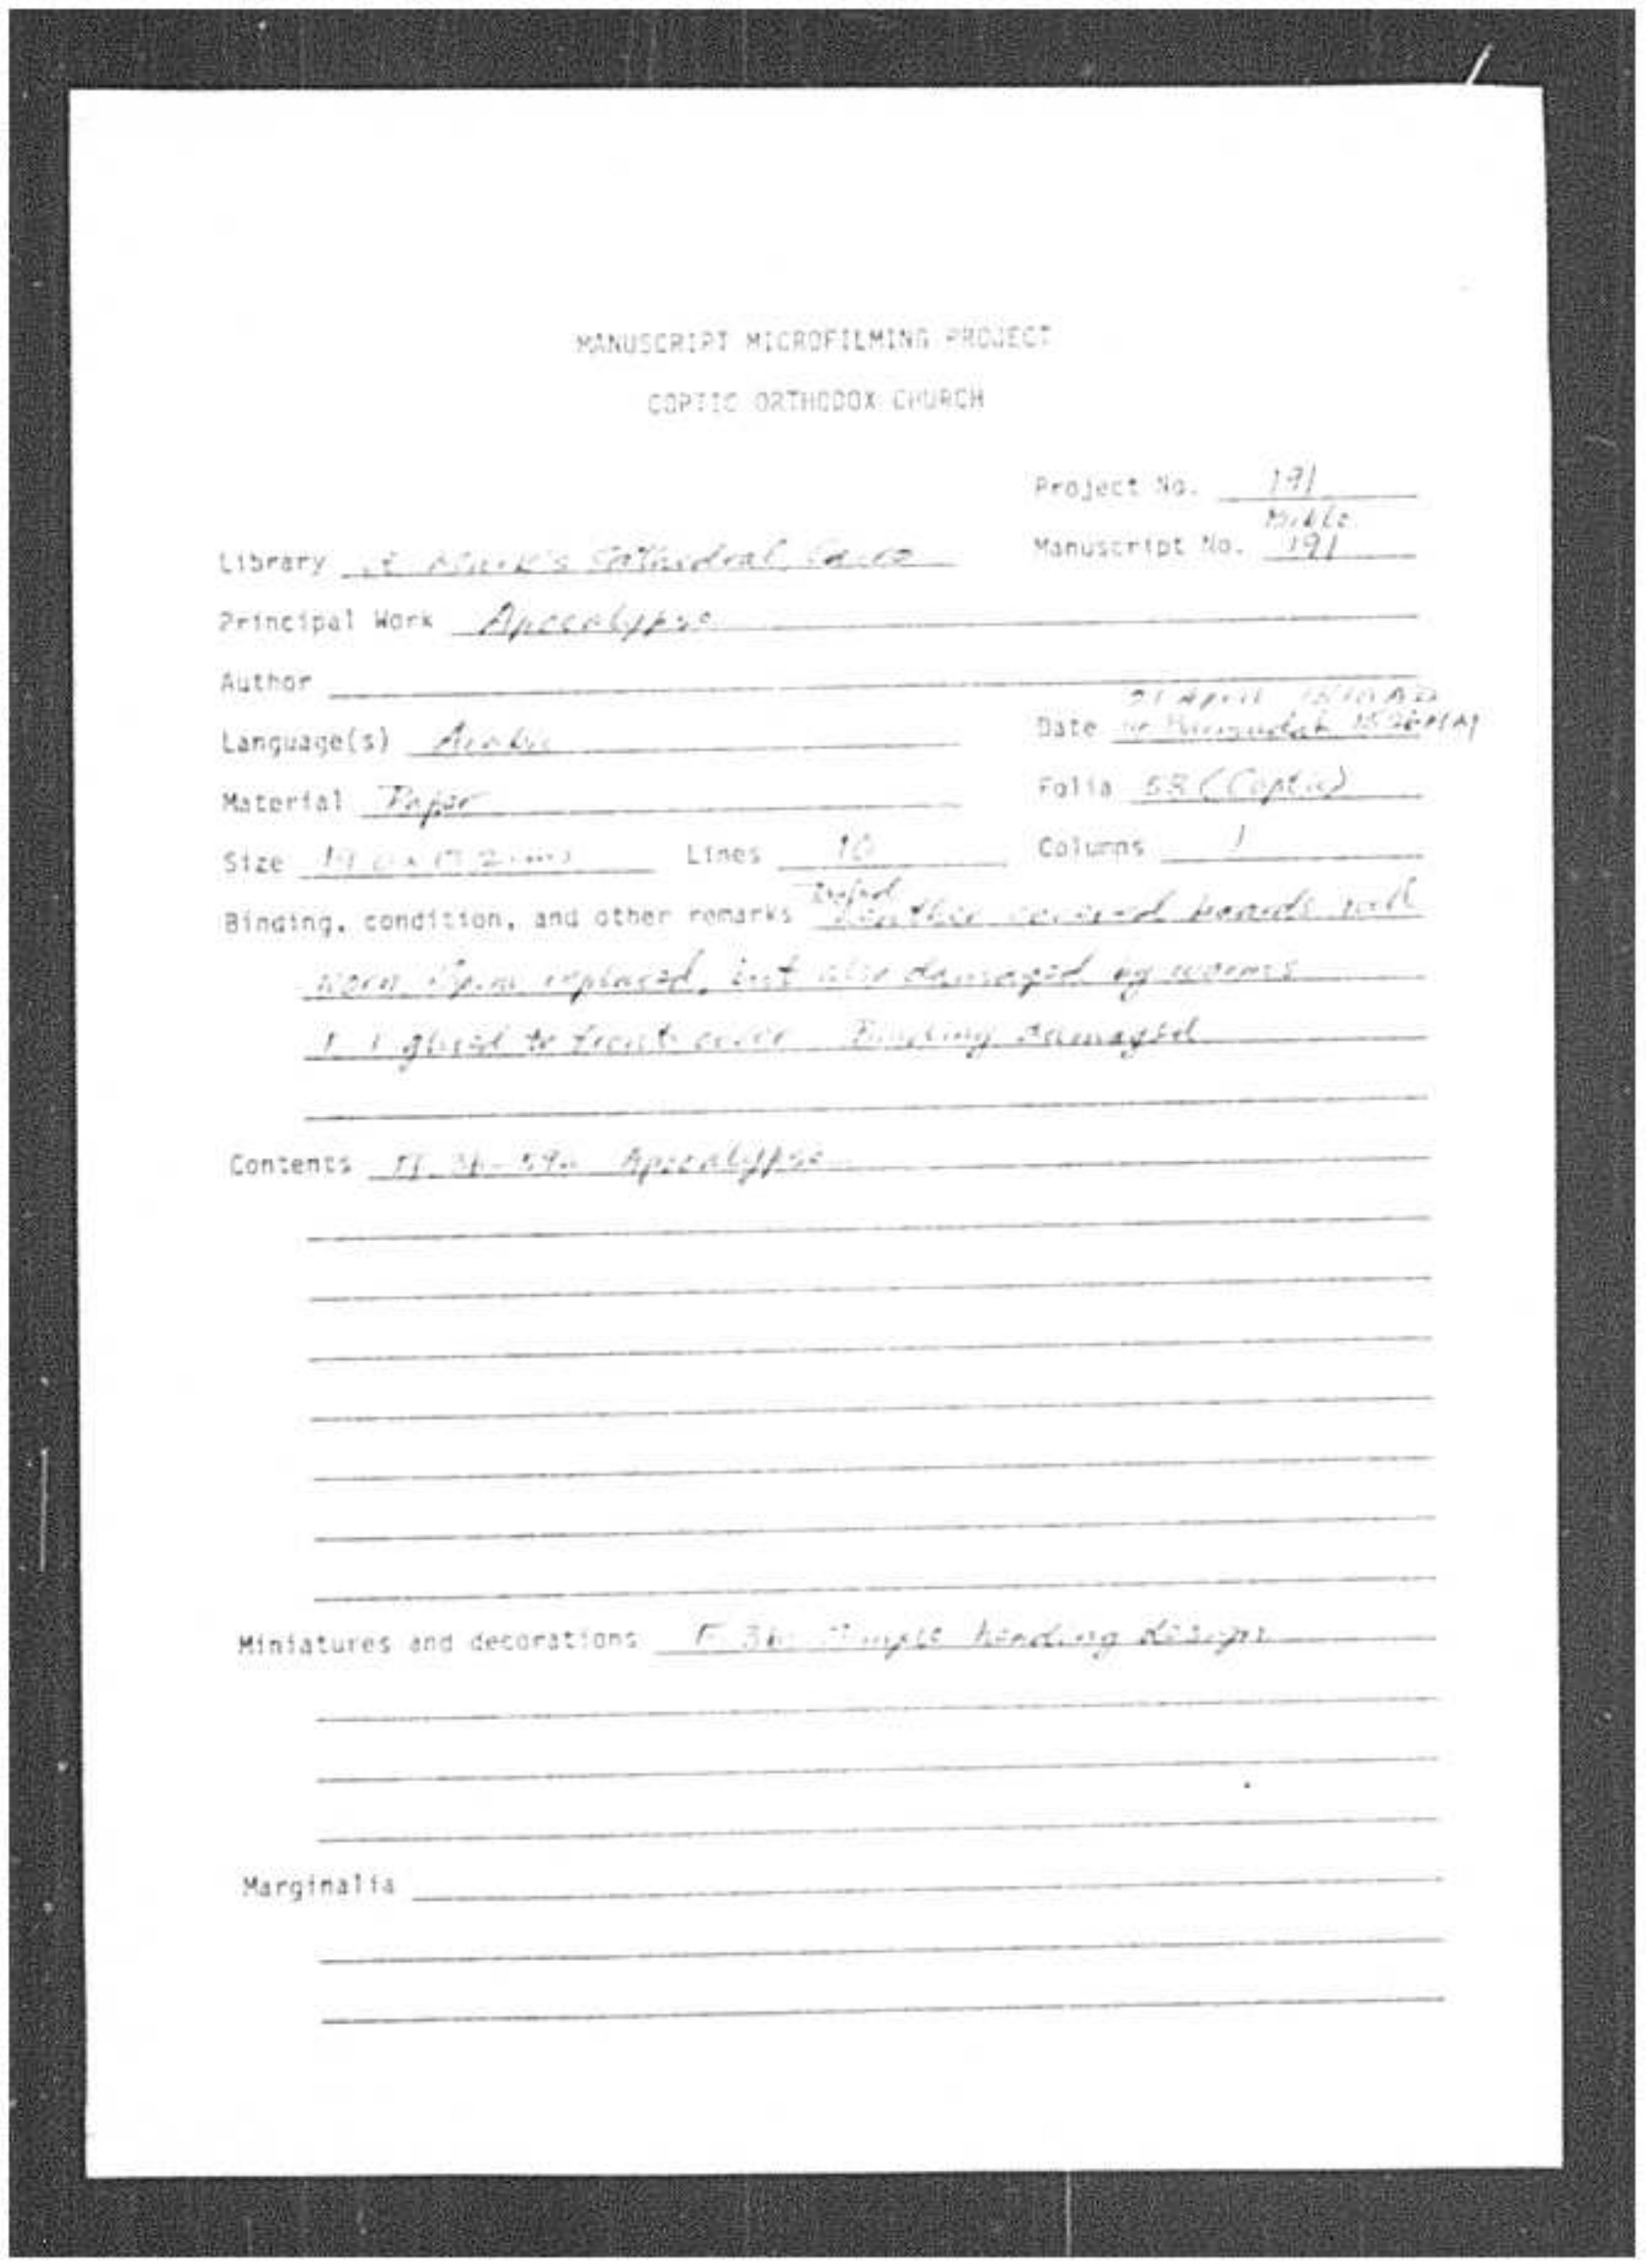 MANUSCRIPT MICROFILMING PROJECT
COPTIC ORTHODOX CHURCH
Project No. 191
Bible
Library St. Mark's Cathedral, Cairo Manuscript No. 191
Principal Work Apocalypse
Author
21 April 1810 AD
Language(s) Arabic Date Baramudah 1526 AM
Material Paper Folia 58 (Coptic)
Size Lines 10 Columns 1
Binding, condition, and other remarks Leather covered boards, well
worn. Spine replaced, but also damaged by worms
F. 1 glued to front cover. Binding damaged
Contents Ff. 3b-59a Apocalypse
Miniatures and decorations F. 3b: Simple heading design
Marginalia